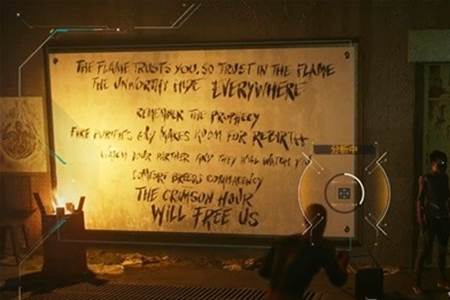 THE FLAME TRUSTS YOU, SO TRUST IN THE FLAME
THE UNWORTHY HIDE EVERYWHERE
REMEMBER THE PROPHECY
FIRE PURIFIES & MAKES ROOM FOR REBIRTH
WATCH YOUR PARTNER AND THEY WILL WATCH
COMFORT BREEDS COMPLACENCY
THE CRIMSON HOUR
WILL FREE US